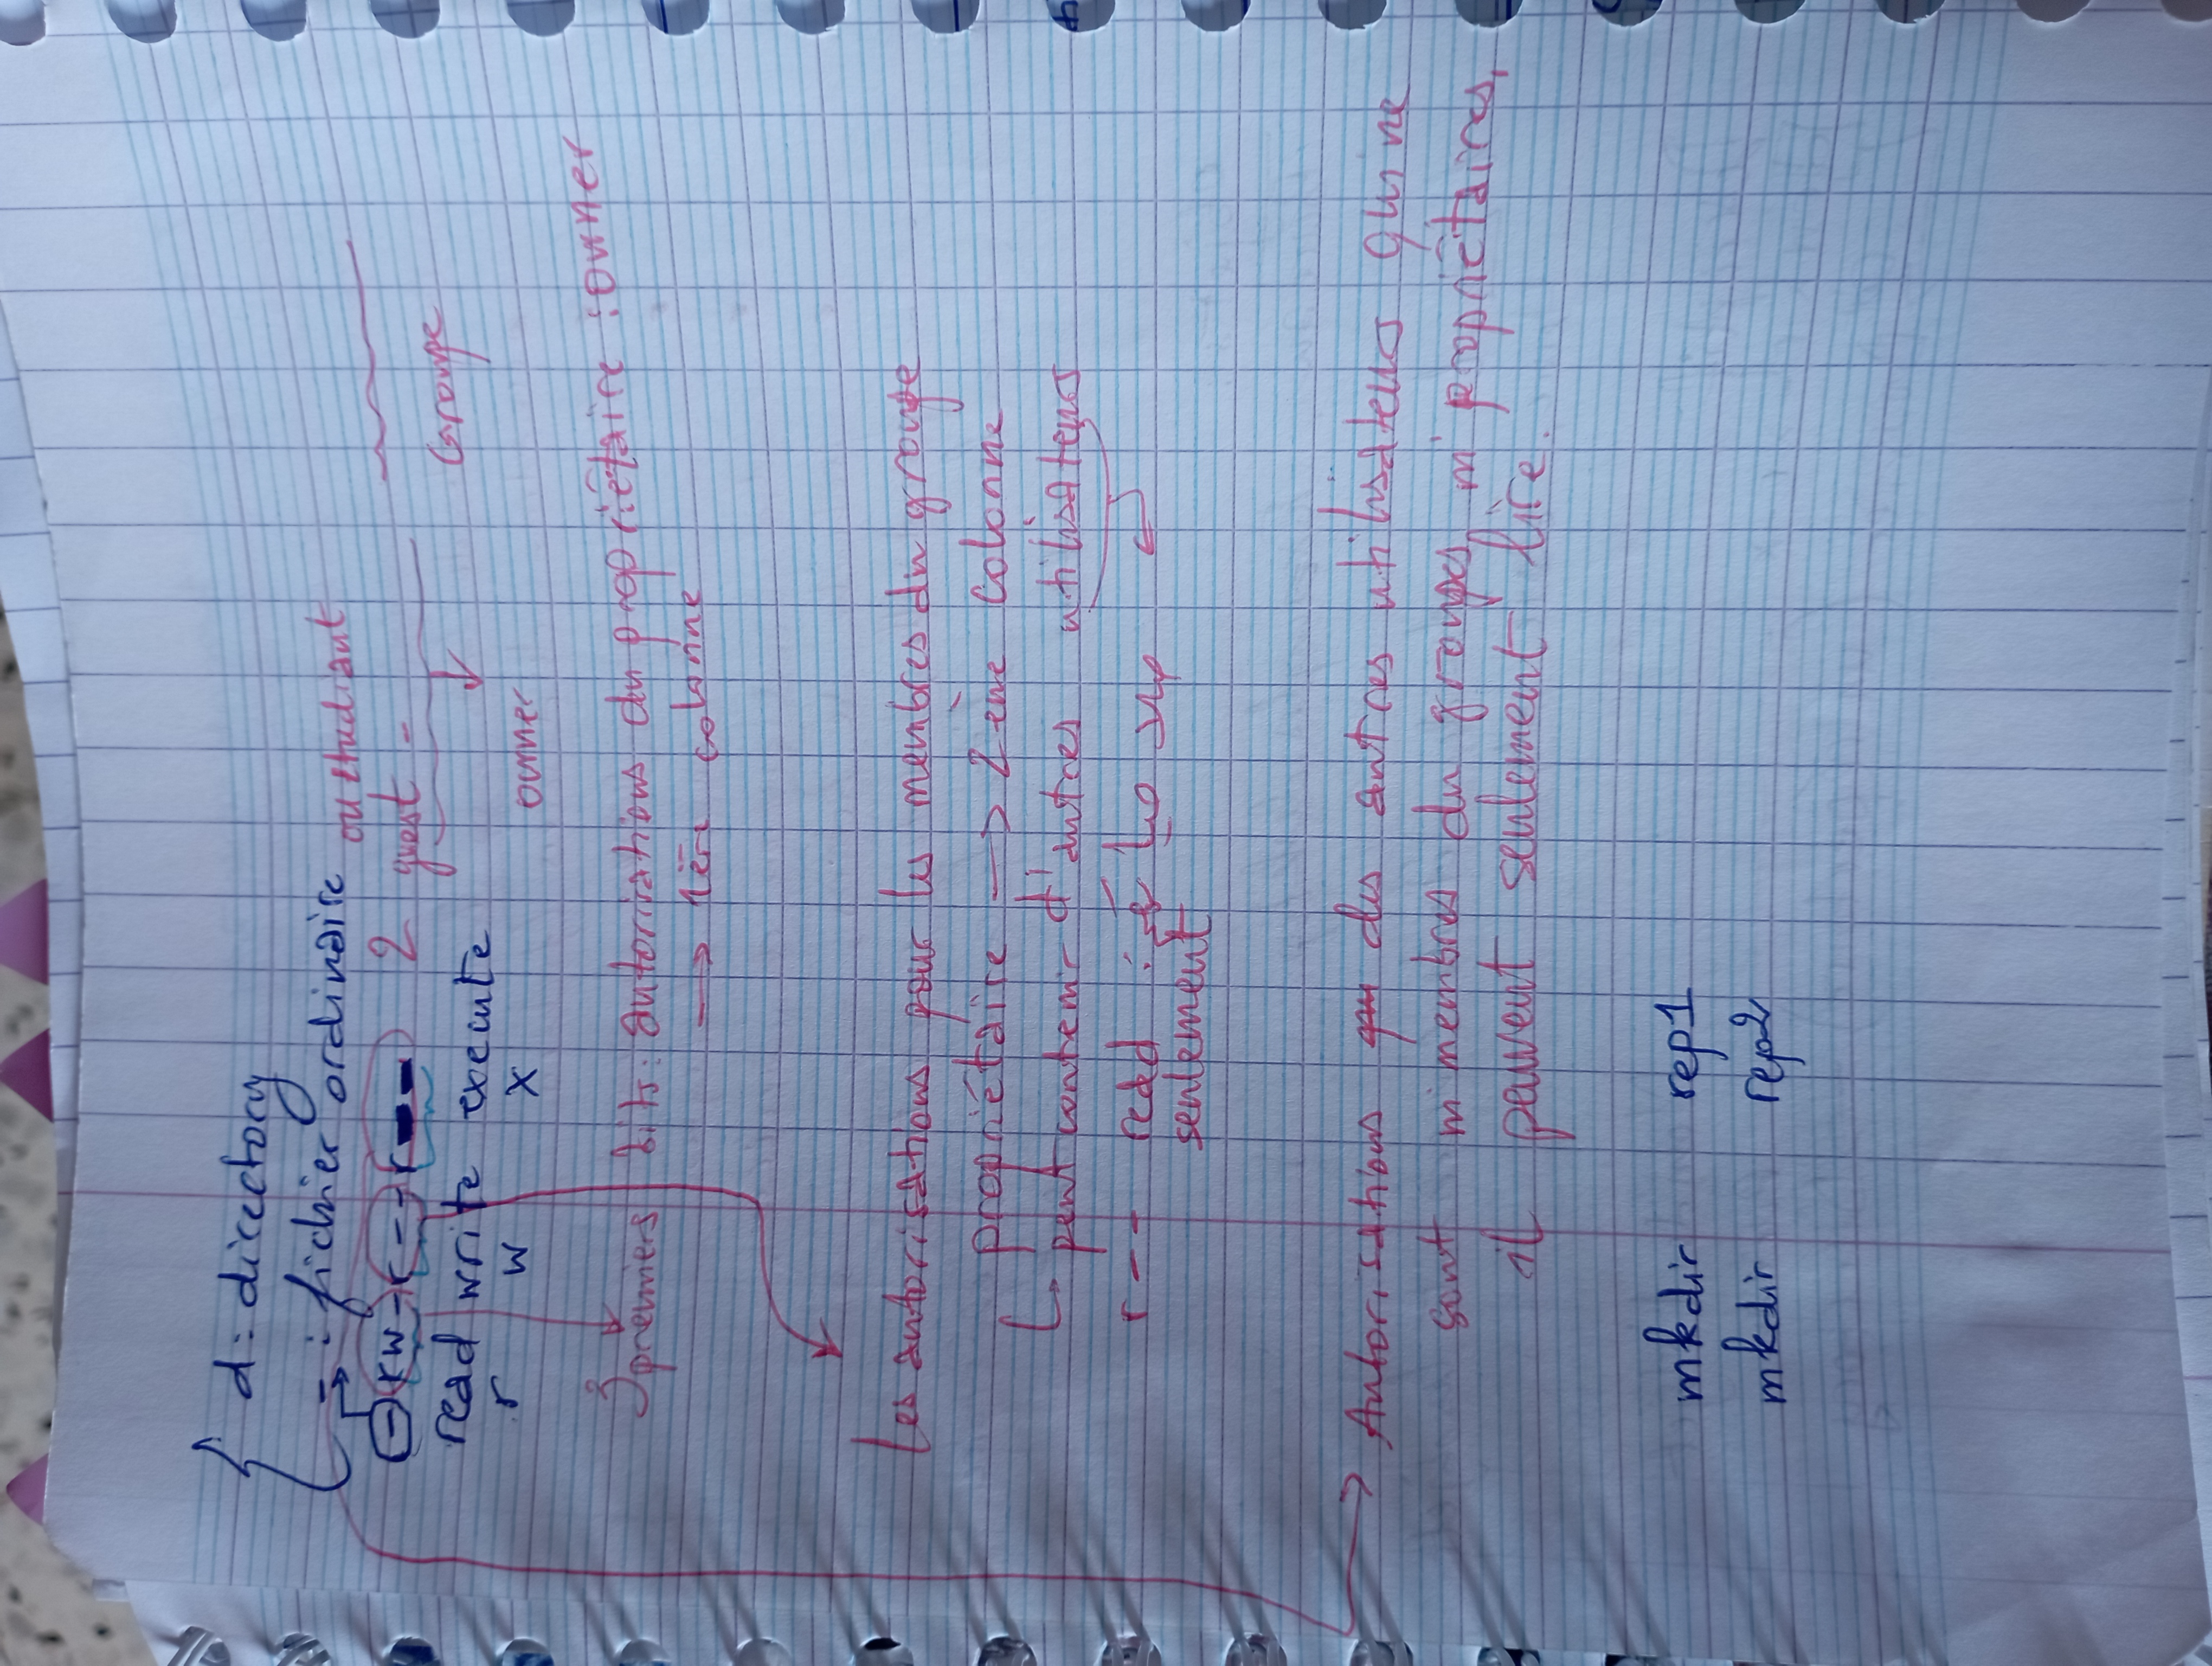 d : directory
- : fichier ordinaire ou etudiant
- rw- r-- r-- 2 guest -
Groupe
read write execute
r w x
owner
3 premiers bits : autorisations du propriétaire : owner
→ 1ère colonne
Les autorisations pour les membres du groupe
propriétaire → 2ème colonne
↳ peut contenir d'autres utilisateurs
r-- read :
seulement
→ Autorisations des autres utilisateurs qui ne
sont ni membres du groupes, ni propriétaires,
il peuvent seulement lire.
mkdir rep1
mkdir rep2